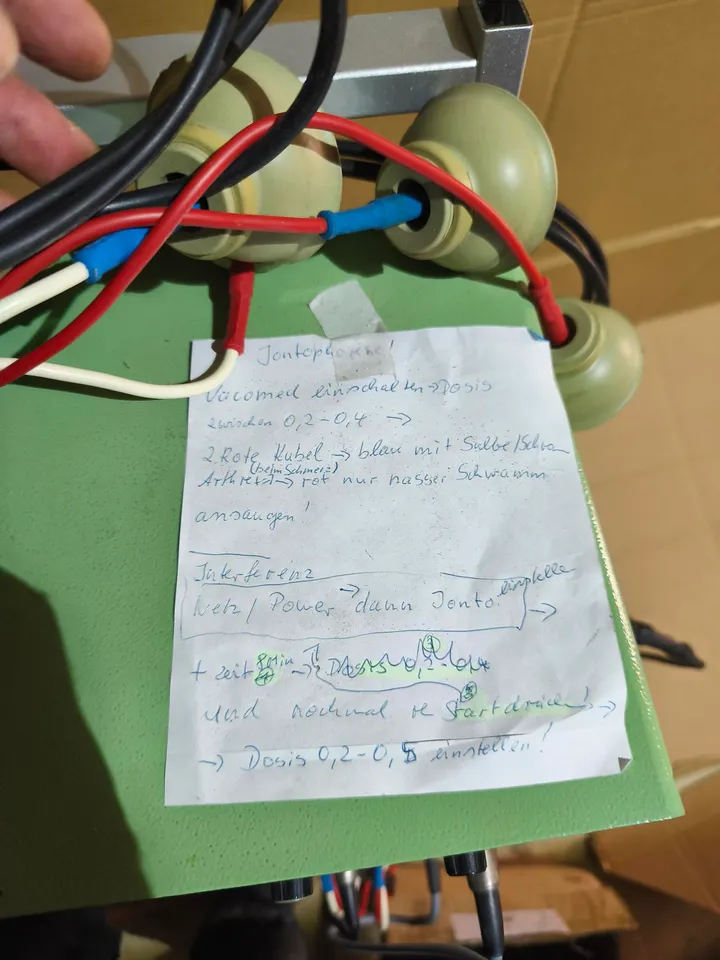 Jontophorese!
Vacomed einschalten → Dosis
zwischen 0,2-0,4 →
2 Rote Kabel → blau mit Salbe/Schwam
(beim Schmerz)
→ rot nur nasser Schwamm
ansaugen!
Interferenz
einstelle
Netz/ Power → dann Jonto. →
+ zeit 8 Min → Dosis 0,2-0,4
und nochmal re Startdrück! →
→ Dosis 0,2-0,5 einstellen!